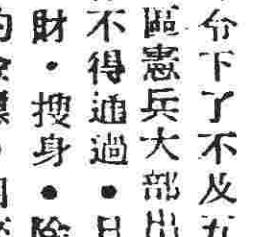 令下了不及
區憲兵大部
不得通過●
財・搜身●